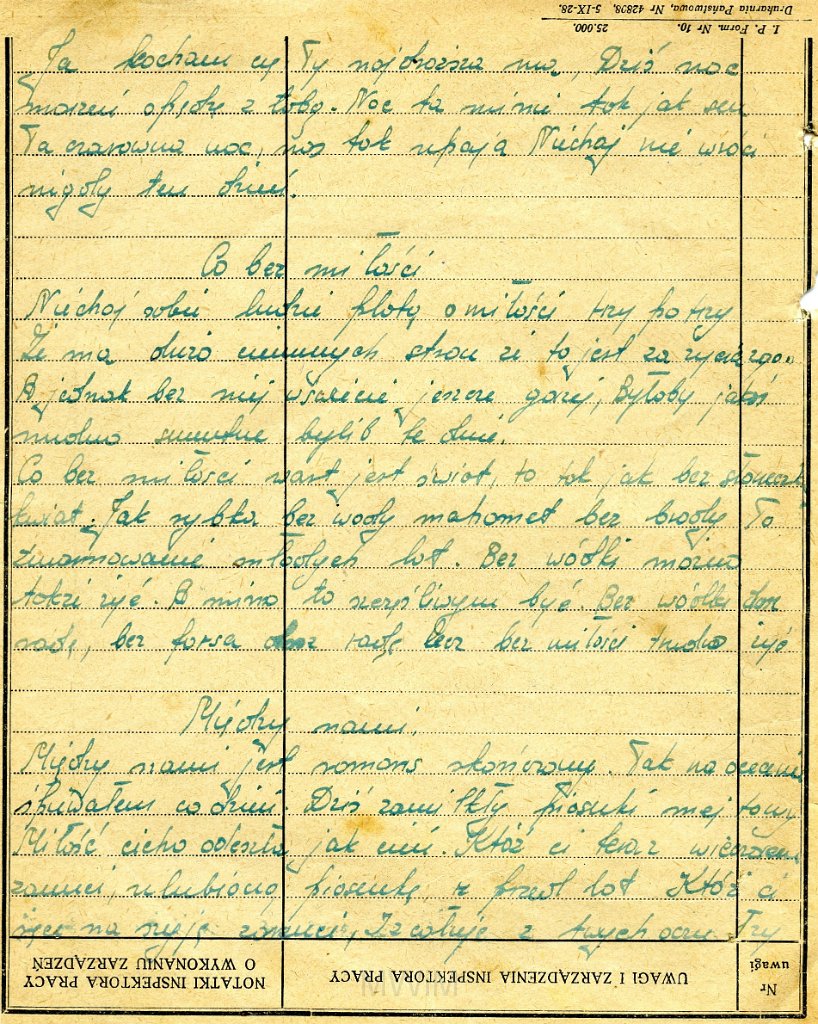 I. P. Form. Nr 10. 25.000.
Drukarnia Państwowa, Nr 42898. 5-IX-28.
Ja kocham cy Ty najdroższa ma, Dziś noc
marzeń spędzę z tobą. Noc ta minie tak jak sen
Ta czarowna noc, nas tak upaja Niechaj nie wróci
nigdy ten dzień.
Co bez miłości
Niechaj sobie ludzie plotą o miłości trzy po trzy
Że ma dużo ciemnych stron że to jest
A jednak bez niej właśnie jeszcze gorzej, Byłoby jakoś
nudno smutne byłib te dnie.
Co bez miłości wart jest świat, to tak jak bez słoneczka
kwiat. Jak rybka bez wody mahomet bez brody To
zmarnowanie młodych lat. Bez wódki można
także żyć. A mimo to szczęśliwym być. Bez wódki dam
radę, bez forsa dam radę lecz bez miłości trudno żyć
Między nami.
Między nami jest romans skończony. Tak na oceanie
śpiewałem co dzień. Dziś zamilkły piosenki mej tony
Miłość cicho odeszła jak cień. Któż ci teraz wieczorem
zanuci, ulubioną piosenkę z przed lat Któż ci
się na szyję zarzuci, Zcałuje z twych oczu łzy
NOTATKI INSPEKTORA PRACY O WYKONANIU ZARZĄDZEŃ
UWAGI I ZARZĄDZENIA INSPEKTORA PRACY
Nr uwagi
MWIM